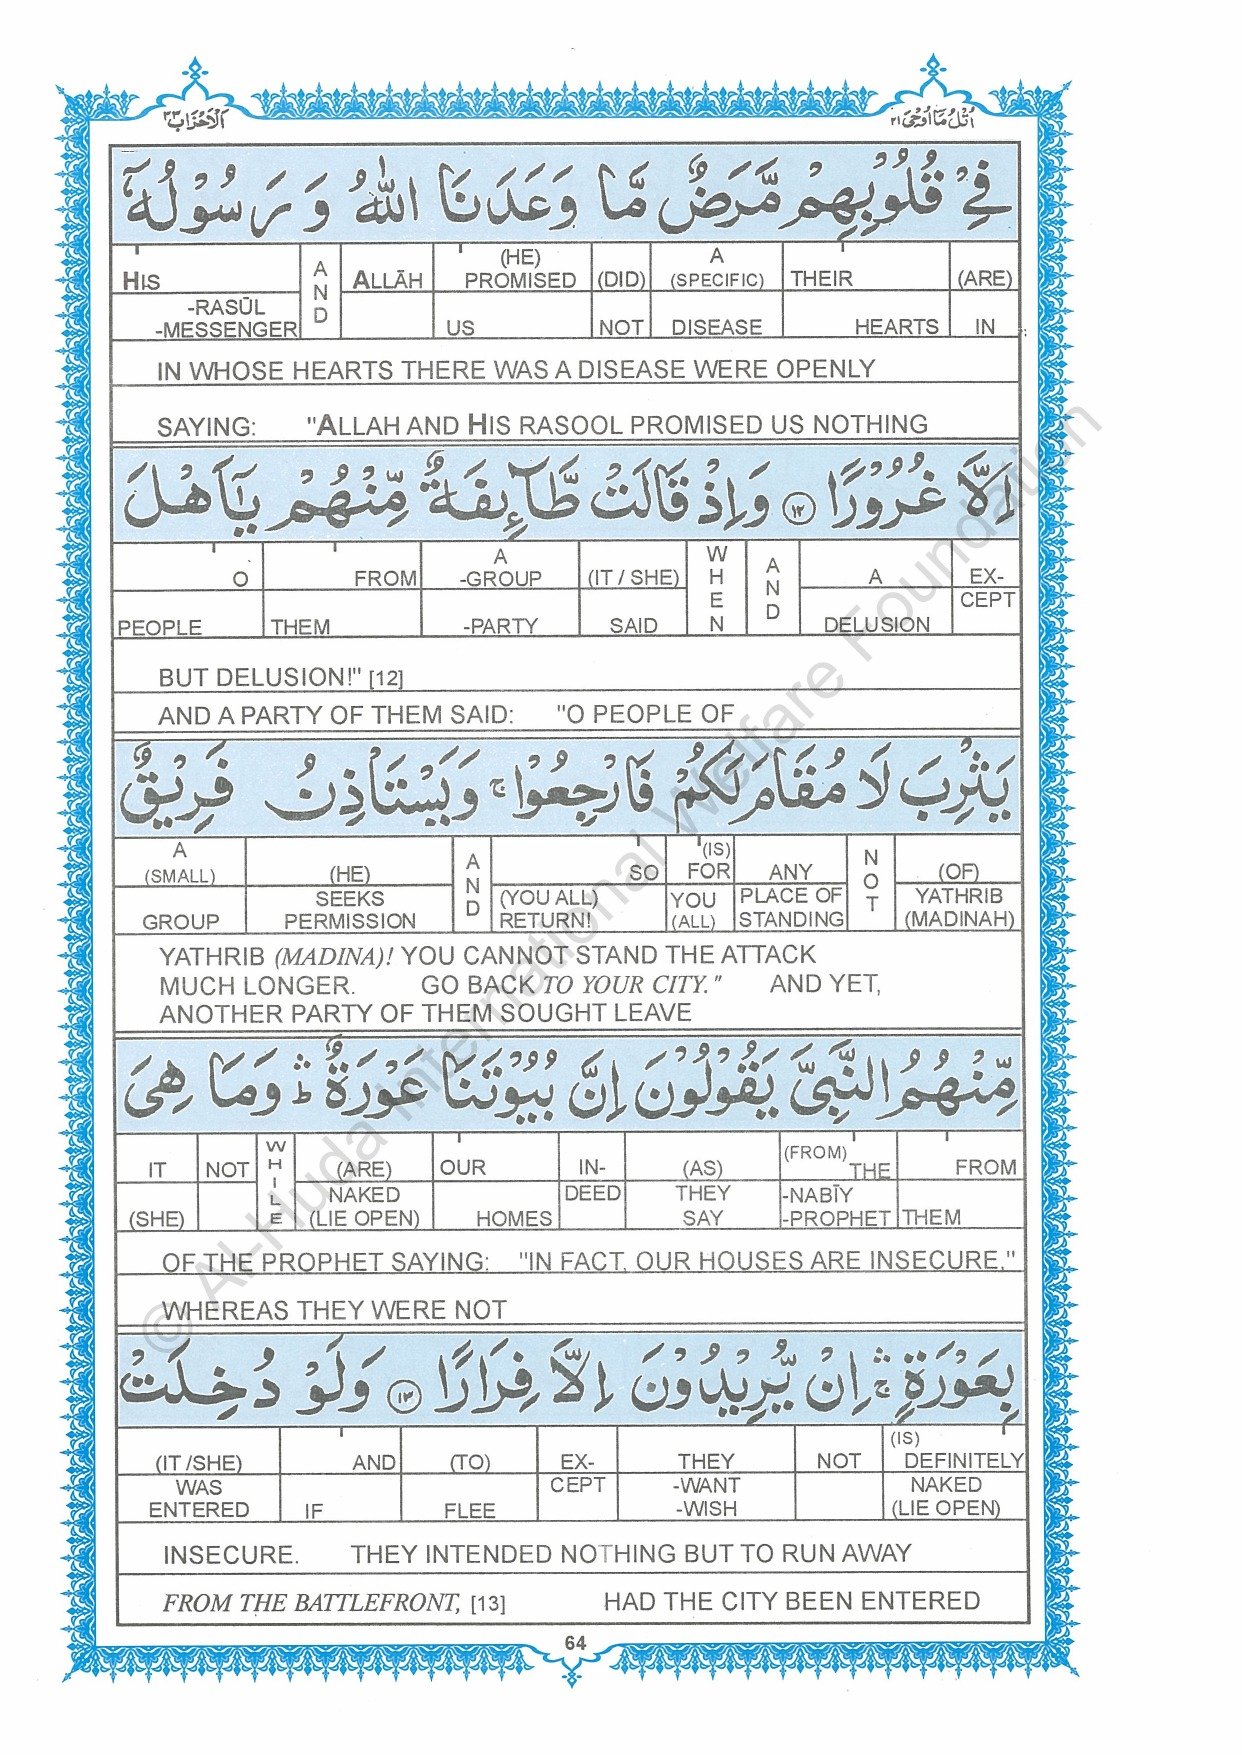 اَلْاَحْزَاب ٣٣
اُتْلُ مَآ اُوْحِیَ ٢١
فِیْ قُلُوْبِهِمْ مَّرَضٌ مَّا وَعَدَنَا اللّٰهُ وَ رَسُوْلُهٗۤ
HIS AND ALLĀH (HE) PROMISED (DID) A (SPECIFIC) THEIR (ARE)
-RASŪL -MESSENGER US NOT DISEASE HEARTS IN
IN WHOSE HEARTS THERE WAS A DISEASE WERE OPENLY
SAYING: "ALLAH AND HIS RASOOL PROMISED US NOTHING
اِلَّا غُرُوْرًا ۝١٢ وَ اِذْ قَالَتْ طَّآئِفَةٌ مِّنْهُمْ یٰۤاَهْلَ
O FROM A -GROUP (IT / SHE) WHEN AND A EX-CEPT
PEOPLE THEM -PARTY SAID DELUSION
BUT DELUSION!" [12]
AND A PARTY OF THEM SAID: "O PEOPLE OF
یَثْرِبَ لَا مُقَامَ لَكُمْ فَارْجِعُوْا ۚ وَ یَسْتَاْذِنُ فَرِیْقٌ
A (SMALL) (HE) AND SO (IS) FOR ANY NOT (OF)
GROUP SEEKS PERMISSION (YOU ALL) RETURN! YOU (ALL) PLACE OF STANDING YATHRIB (MADINAH)
YATHRIB (MADINA)! YOU CANNOT STAND THE ATTACK
MUCH LONGER. GO BACK TO YOUR CITY." AND YET,
ANOTHER PARTY OF THEM SOUGHT LEAVE
مِّنْهُمُ النَّبِیَّ یَقُوْلُوْنَ اِنَّ بُیُوْتَنَا عَوْرَةٌ ؕۛ وَ مَا هِیَ
IT NOT WHILE (ARE) OUR IN-DEED (AS) (FROM) THE FROM
(SHE) NAKED (LIE OPEN) HOMES THEY SAY -NABĪY -PROPHET THEM
OF THE PROPHET SAYING: "IN FACT, OUR HOUSES ARE INSECURE,"
WHEREAS THEY WERE NOT
بِعَوْرَةٍ ۚۛ اِنْ یُّرِیْدُوْنَ اِلَّا فِرَارًا ۝١٣ وَ لَوْ دُخِلَتْ
(IT /SHE) AND (TO) EX-CEPT THEY NOT (IS) DEFINITELY
WAS ENTERED IF FLEE -WANT -WISH NAKED (LIE OPEN)
INSECURE. THEY INTENDED NOTHING BUT TO RUN AWAY
FROM THE BATTLEFRONT, [13] HAD THE CITY BEEN ENTERED
64
© Al-Huda International Welfare Foundation